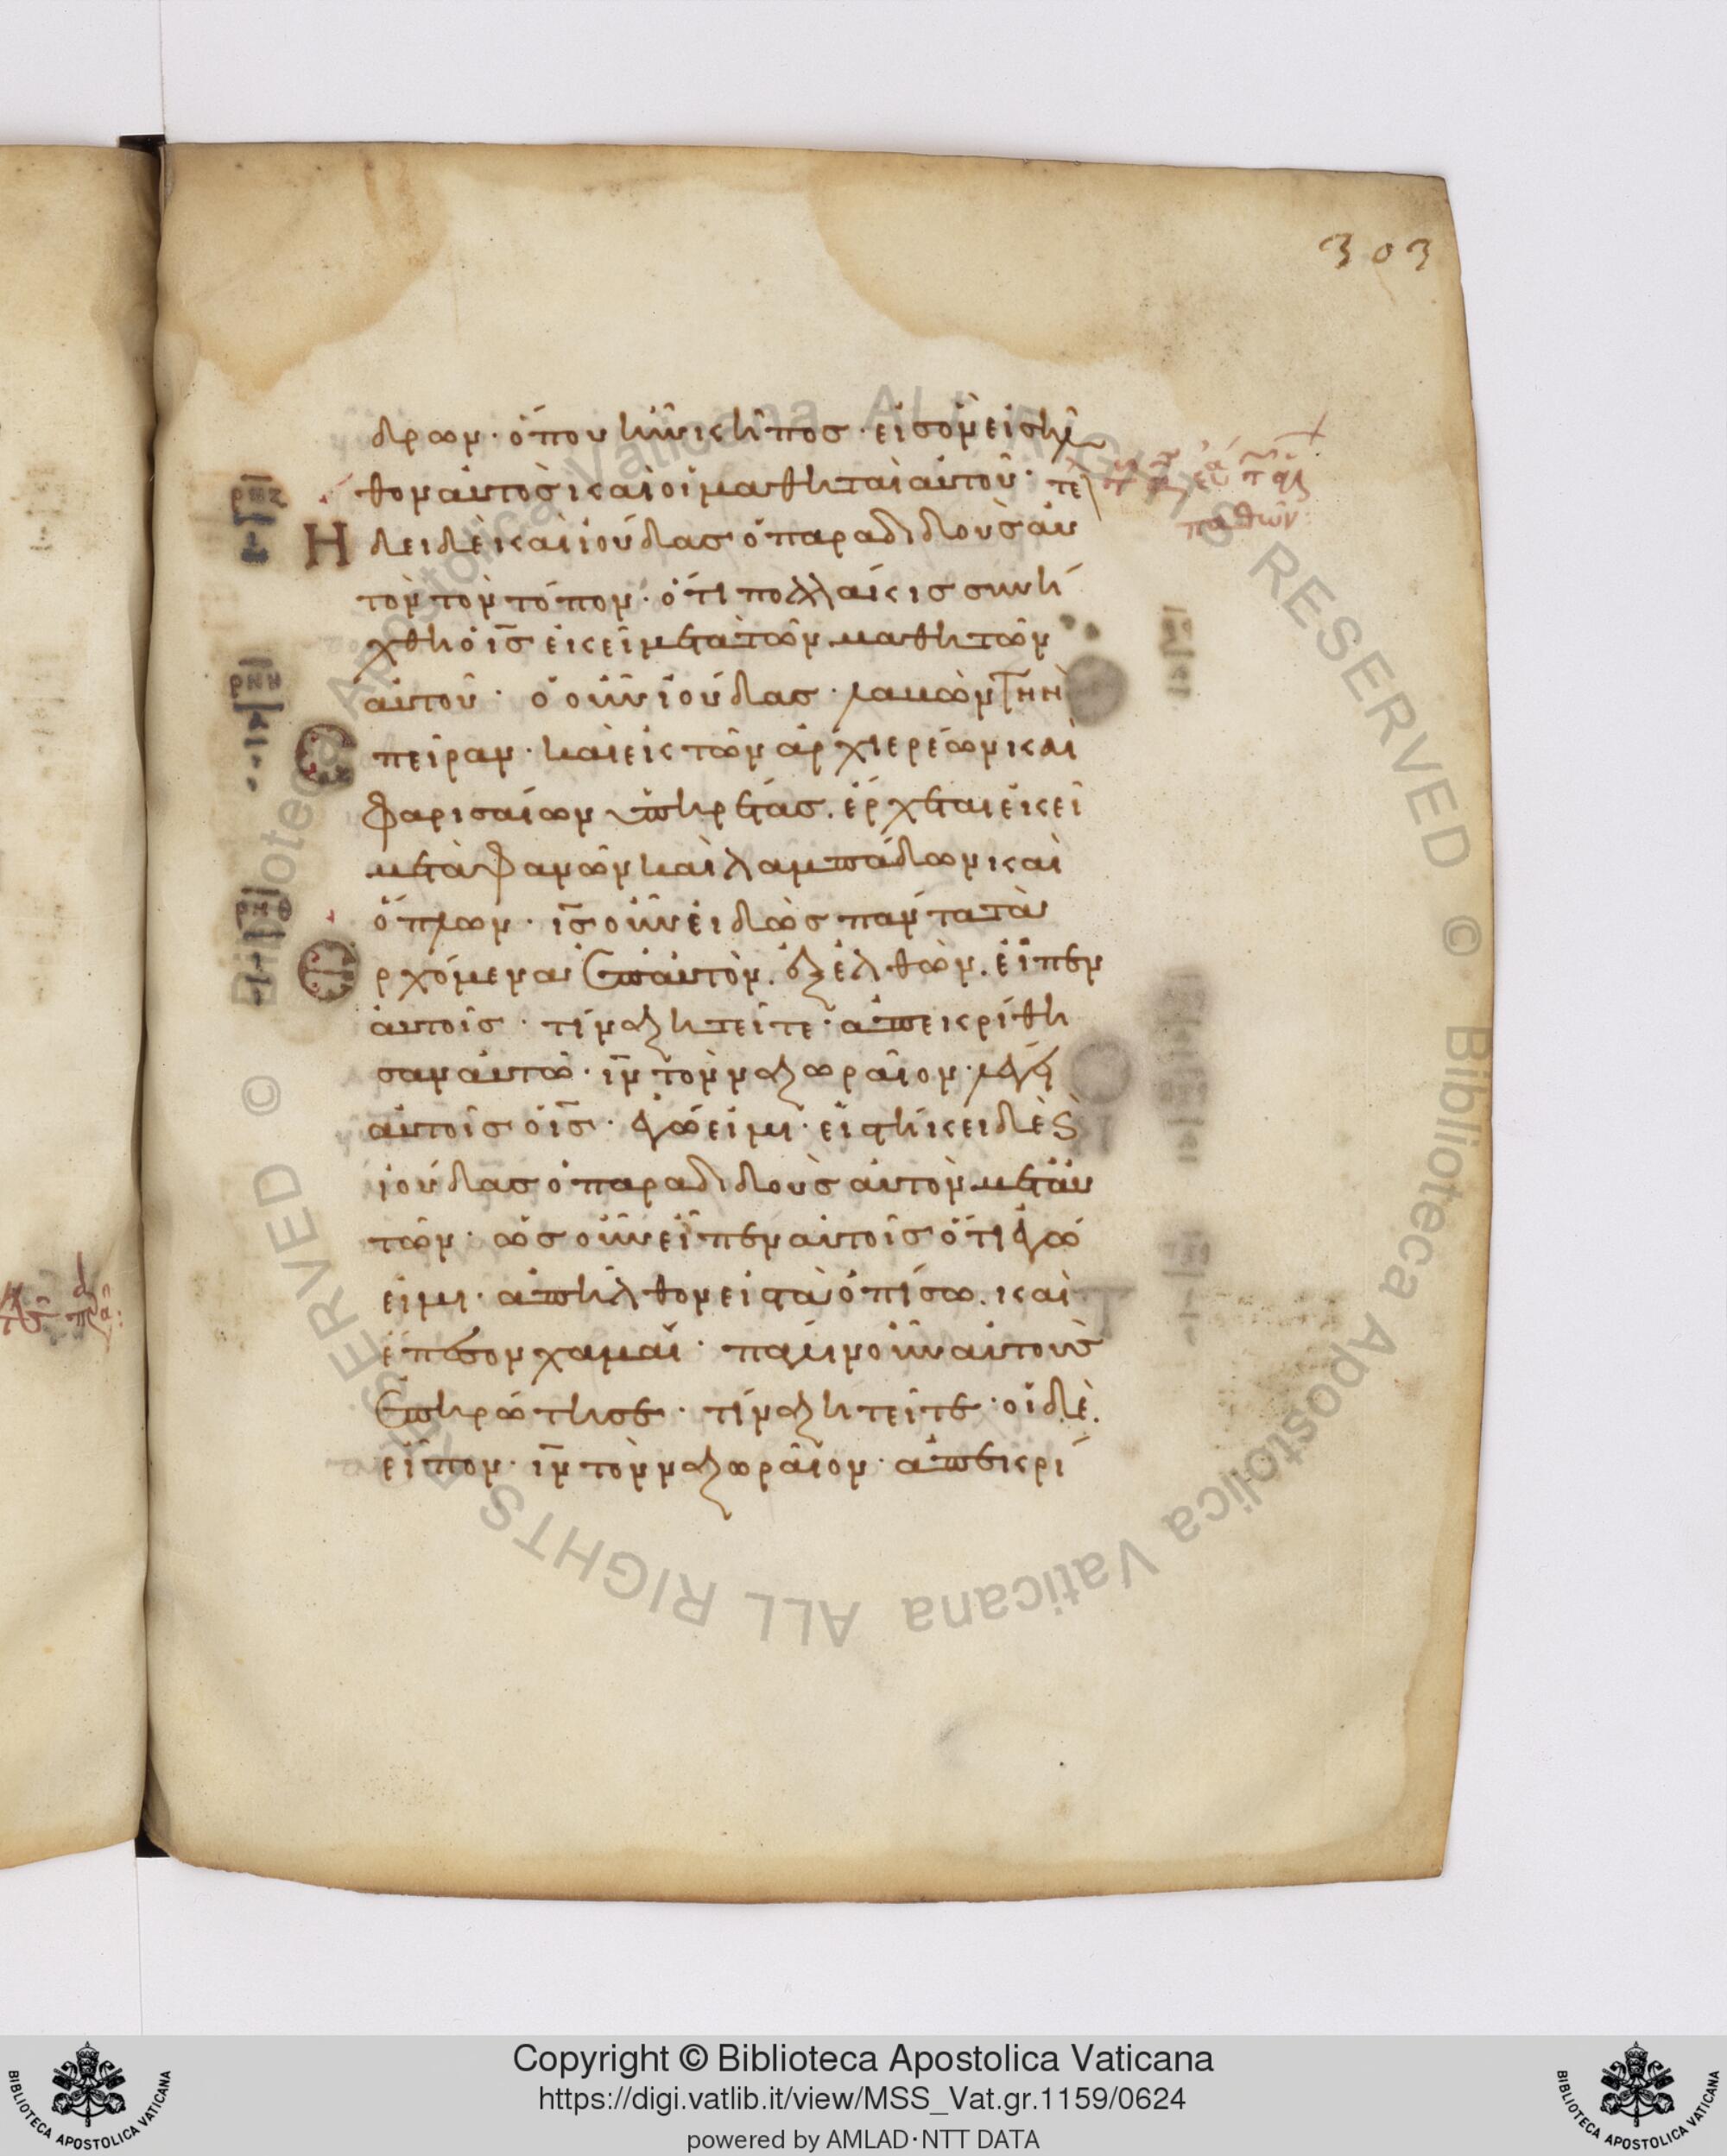 303
δρων· ὅπου ἦν κῆπος· εἰς ὃν εἰσῆλ
θον αὐτὸς καὶ οἱ μαθηταὶ αὐτοῦ· τε
Ηδει δὲ καὶ ἰούδας ὁ παραδιδοὺς αὐ
τὸν τὸν τόπον· ὅτι πολλάκις συνή
χθη ὁ ις ἐκεῖ μετὰ τῶν μαθητῶν
αὐτοῦ· ὁ οὖν ἰούδας· λαβὼν τὴν
πεῖραν· καὶ ἐκ τῶν ἀρχιερέων καὶ
φαρισαίων ὑπηρέτας. ἔρχεται ἐκεῖ
μετὰ φανῶν καὶ λαμπάδων καὶ
ὅπλων· ις οὖν εἰδὼς πάντα τὰ
Ερχόμενα ἐπ αὐτὸν. ἐξελθὼν. εἶπεν
αὐτοῖς· τίνα ζητεῖτε· ἀπεκρίθη
σαν αὐτῶ· ιν τὸν ναζωραῖον· λέγει
αὐτοῖς ὁ ις· ἐγώ εἰμι· εἱστήκει δὲ ϗ
ἰούδας ὁ παραδιδοὺς αὐτὸν μετ αὐ
τῶν· ὡς οὖν εἶπεν αὐτοῖς ὅτι ἐγώ
εἰμι· ἀπῆλθον εἰς τὰ ὀπίσω. καὶ
ἔπεσον χαμαί· πάλιν οὖν αὐτοὺς
ἐπηρώτησε· τίνα ζητεῖτε· οἱ δὲ.
εἶπον· ιν τὸν ναζωραῖον· ἀπεκρί
παθῶν
Copyright © Biblioteca Apostolica Vaticana
https://digi.vatlib.it/view/MSS_Vat.gr.1159/0624
powered by AMLAD·NTT DATA
BIBLIOTECA APOSTOLICA VATICANA
BIBLIOTECA APOSTOLICA VATICANA
© Biblioteca Apostolica Vaticana ALL RIGHTS RESERVED © Biblioteca Apostolica Vaticana ALL RIGHTS RESERVED